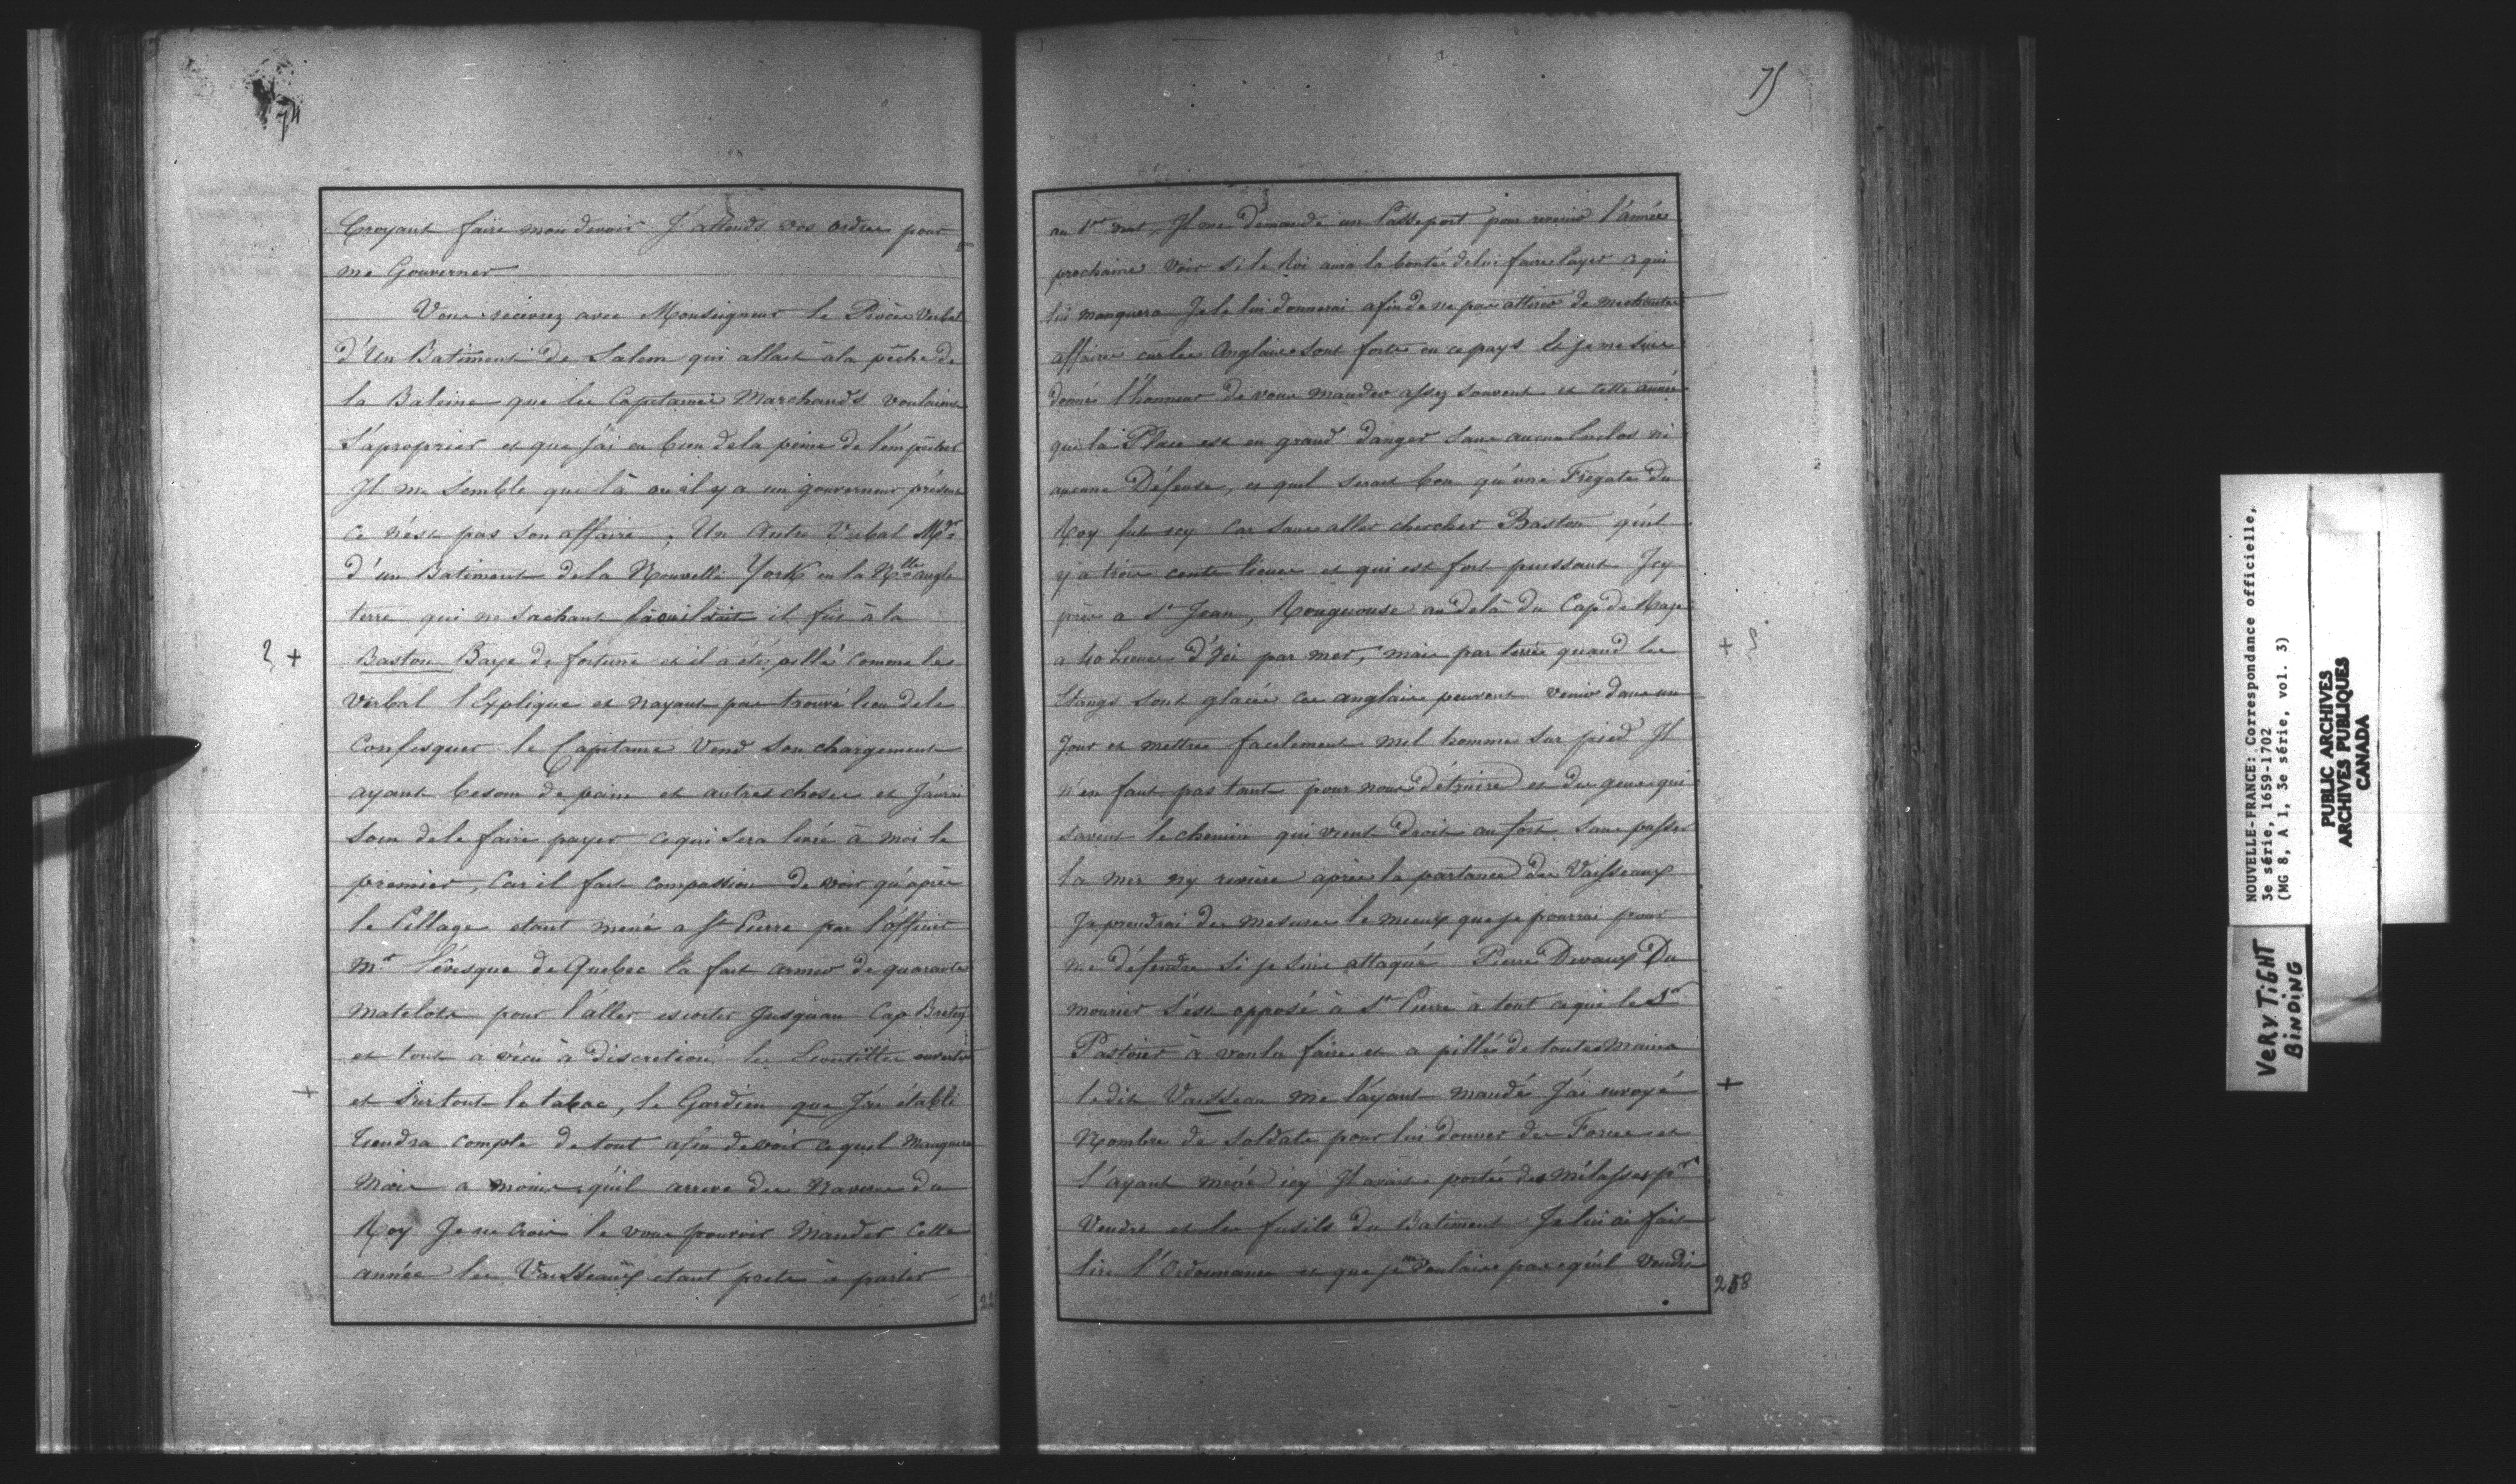 74
Croyant faire mon devoir J'attends vos ordres pour
me Gouverner
Vous recevrez avec Monseigneur le Procès Verbal
d'Un Batiment de Salem qui allait à la pêche de
la Baleine que les Capitaines Marchands voulaient
S'aproprier et que j'ai eu bien de la peine de l'empêcher
Il me Semble que là où il y a un gouverneur présent
ce n'est pas son affaire ; Un Autre Verbal Mgr
d'un Batiment de la Nouvelle York en la Nlle angle
terre qui ne sachant là où il était il fut à la
? + Baston Baye de fortune et il a été pillé comme les
Verbal l'Explique et n'ayant pas trouvé lieu de le
Confisquer le Capitaine Vend son chargement
ayant besoin de pain et autres choses et J'aurai
soin de le faire payer ce qui sera livré à moi le
premier, Car il fait compassion de voir qu'après
le Pillage etant mené a St Pierre par l'officier
Mr l'évesque de Quebec l'a fait armer de quarante
Matelots pour l'aller escorter Jusqu'au Cap Breton
et tout a vécu à discretion les Ecoutilles ouvertes
+ et Surtout le tabac, le Gardien que J'ai établi
tiendra compte de tout afin de voir ce qu'il Manquera
Mais a moins qu'il arrive des Navires du
Roy Je ne crois le vous pouvoir Mander Cette
année les Vaisseaux etant prets à partir
75
au 1er vent, Il me Demande un Passeport pour revenir l'année
prochaine Voir Si le Roi aura la bonté de lui faire Payer ce qui
lui manquera Je le lui donnerai afin de ne pas attirer de mechantes
affaires car les Anglais sont forts en ce pays Et je me Suis
donné l'honneur de vous mander assez souvent et cette année
que la Place est en grand danger Sans aucun Enclos ni
aucune Défense, et quil serait bon qu'une Frégate du
Roy fut icy Car Sans aller chercher Baston qu'il
y a trois cents lieues et qui est fort puissant Icy
près a St Jean, Rougnouse au delà du Cap de Raze
a 40 Lieues d'Ici par mer, mais par terre quand les + ?
Etangs sont glacés ces anglais peuvent venir dans un
Jour et mettre facilement mil homme Sur pied Il
n'en faut pas tant pour nous détruire et des gens qui
savent le chemin qui vient droit au fort sans passer
la mer ny rivière après la partance des Vaisseaux
Je prendrai des mesures le mieux que je pourrai pour
me défendre si je suis attaqué Pierre Devaux Du
mourier S'est opposé à St Pierre à tout ce que le Sr
Pastoier à voulu faire et a pillé de toutes Mains
ledit Vaisseau me l'ayant mandé J'ai envoyé +
Nombre de Soldats pour lui donner des Forces et
l'ayant mené icy Il avait porté des Mélasses pr
Vendre et les fusils du Batiment Je lui ai fait
lire l'Ordonnance et que je ne voulais pas qu'il Vendit
258
NOUVELLE-FRANCE: Correspondance officielle,
3e série, 1659-1702
(MG 8, A 1, 3e série, vol. 3)
PUBLIC ARCHIVES
ARCHIVES PUBLIQUES
CANADA
VERY TiGHT
BiNDiNG